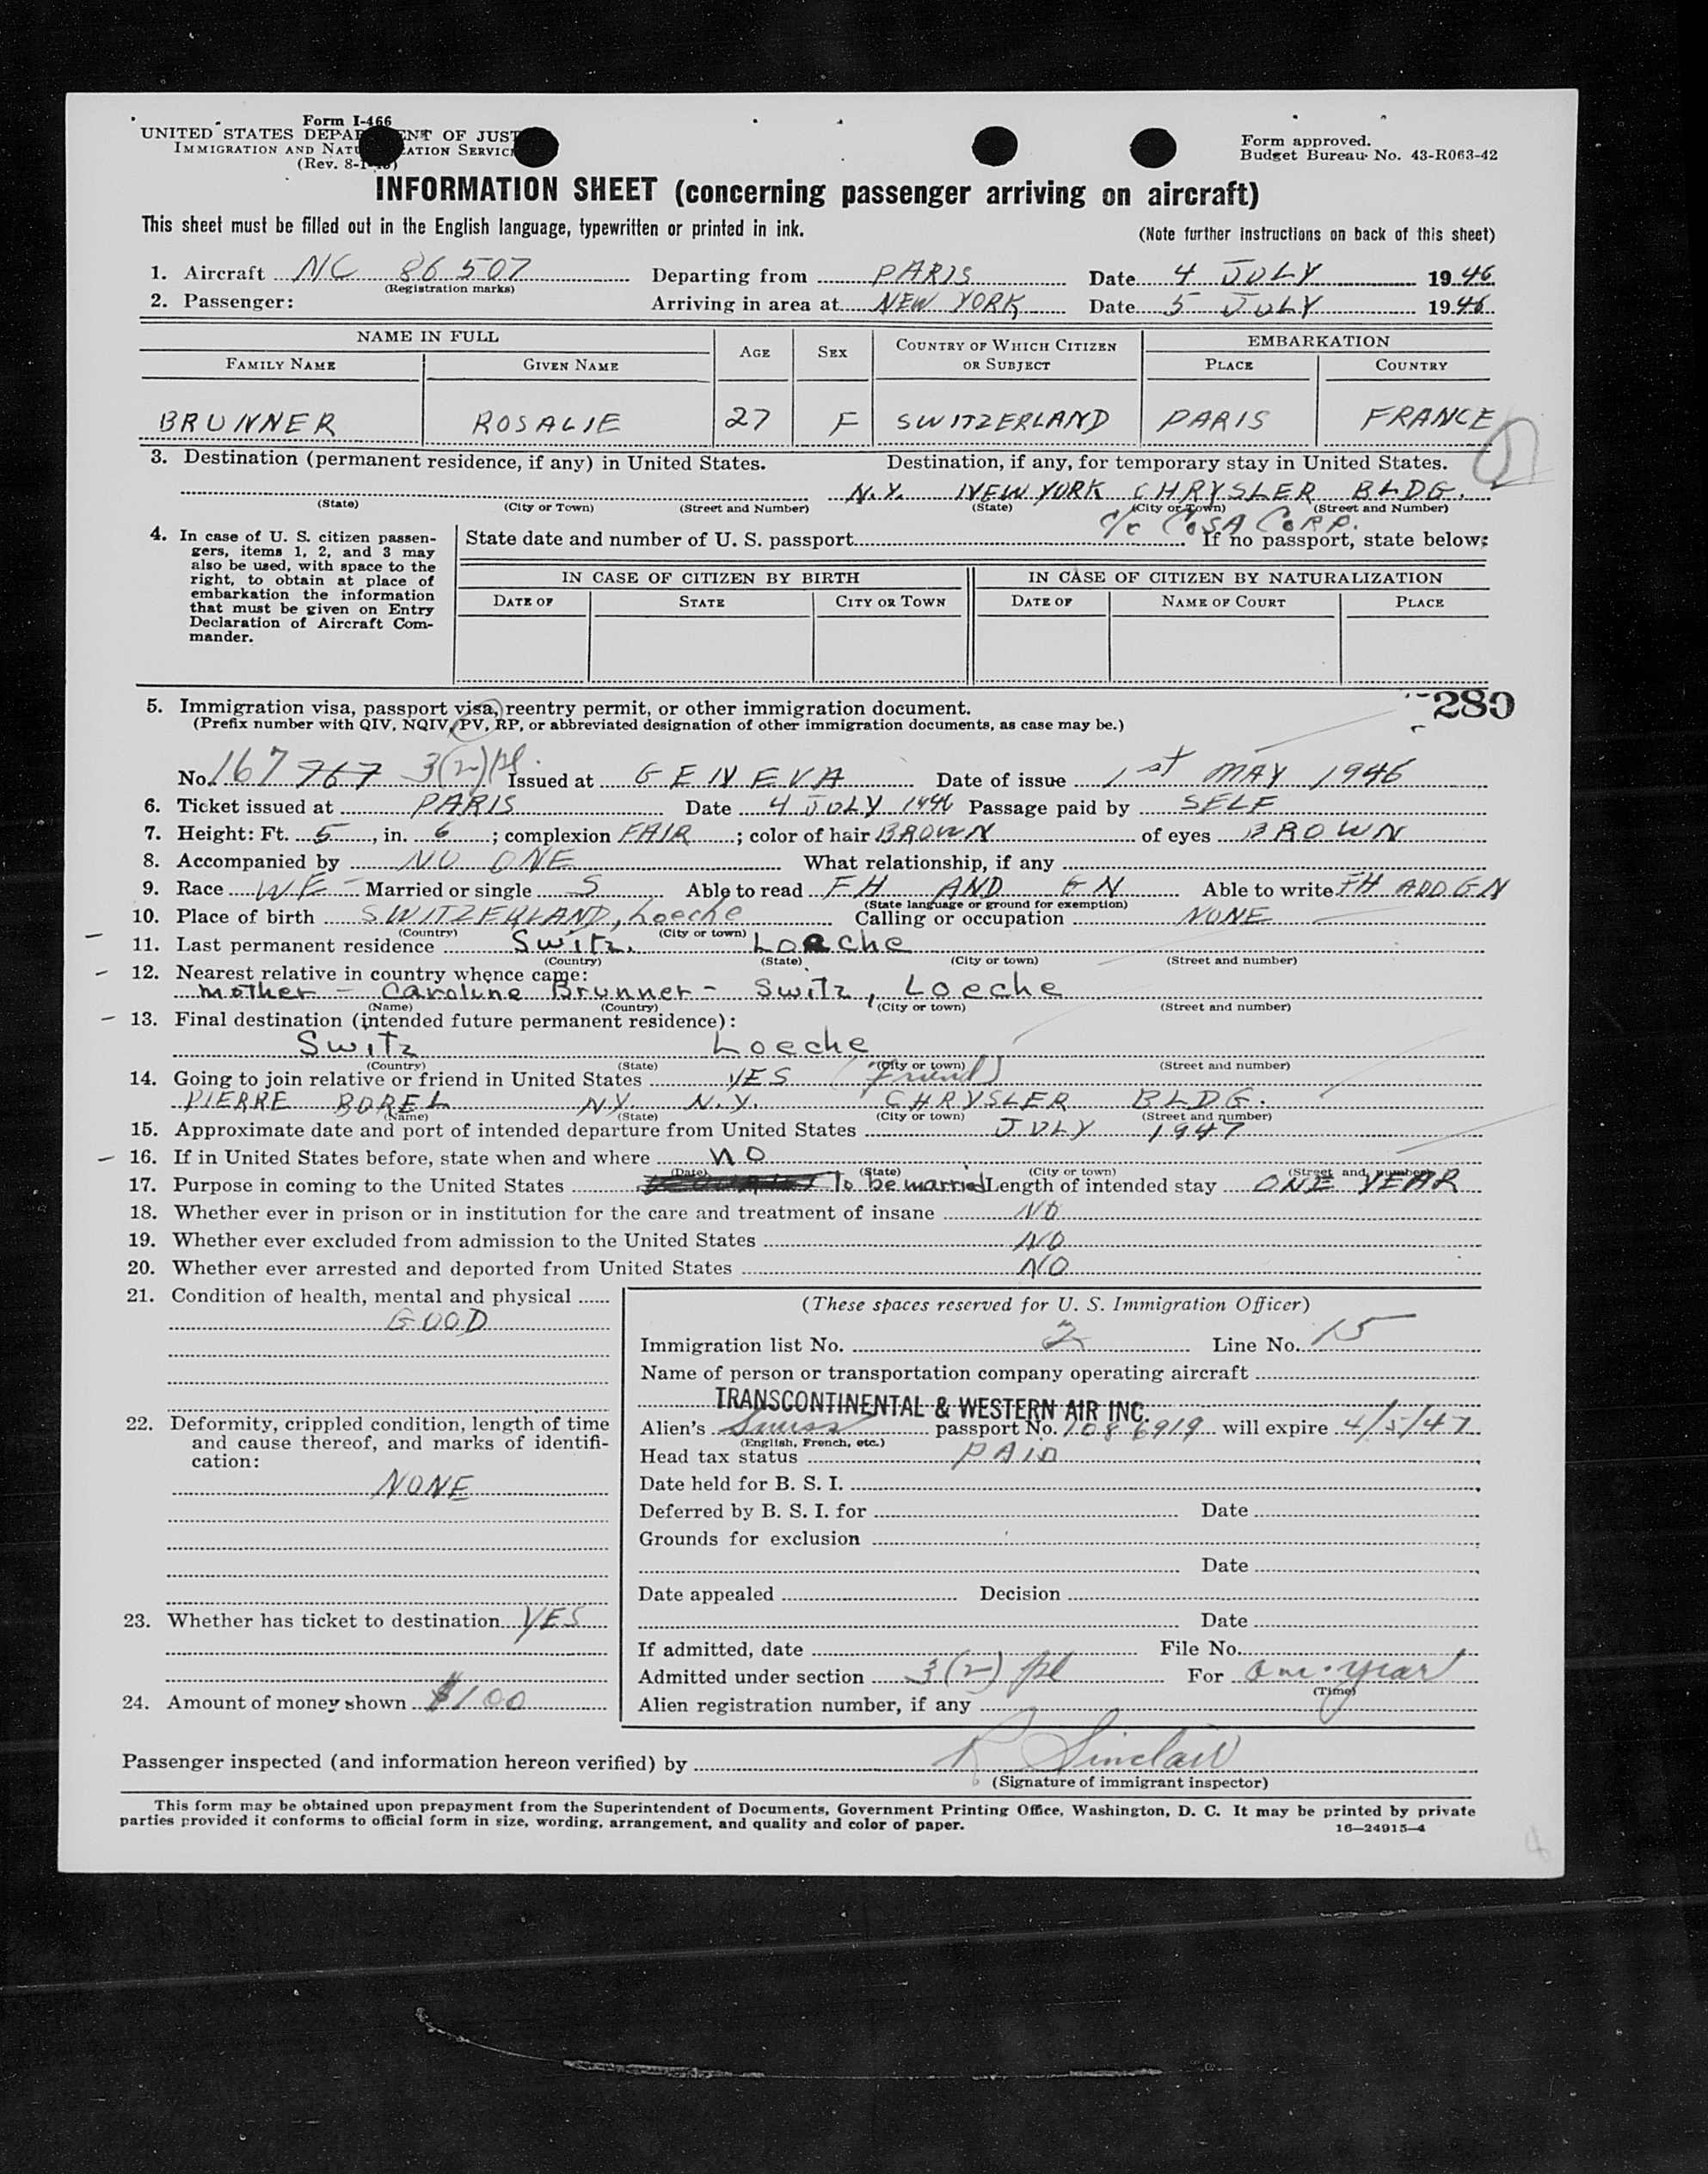 Form I-466
UNITED STATES DEPARTMENT OF JUSTICE
IMMIGRATION AND NATURALIZATION SERVICE
(Rev. 8-1-45)
Form approved.
Budget Bureau No. 43-R063-42
INFORMATION SHEET (concerning passenger arriving on aircraft)
This sheet must be filled out in the English language, typewritten or printed in ink.
(Note further instructions on back of this sheet)
1. Aircraft NC 86507 Departing from PARIS Date 4 JULY 1946
(Registration marks)
2. Passenger: Arriving in area at NEW YORK Date 5 JULY 1946
NAME IN FULL AGE SEX COUNTRY OF WHICH CITIZEN OR SUBJECT EMBARKATION
FAMILY NAME GIVEN NAME PLACE COUNTRY
BRUNNER ROSALIE 27 F SWITZERLAND PARIS FRANCE
3. Destination (permanent residence, if any) in United States. Destination, if any, for temporary stay in United States.
N.Y. NEW YORK CHRYSLER BLDG.
(State) (City or Town) (Street and Number) (State) (City or Town) (Street and Number)
c/o COSA CORP.
4. In case of U. S. citizen passen-
gers, items 1, 2, and 3 may
also be used, with space to the
right, to obtain at place of
embarkation the information
that must be given on Entry
Declaration of Aircraft Com-
mander.
State date and number of U. S. passport If no passport, state below:
IN CASE OF CITIZEN BY BIRTH IN CASE OF CITIZEN BY NATURALIZATION
DATE OF STATE CITY OR TOWN DATE OF NAME OF COURT PLACE
280
5. Immigration visa, passport visa, reentry permit, or other immigration document.
(Prefix number with QIV, NQIV, PV, RP, or abbreviated designation of other immigration documents, as case may be.)
No. 167 767 3(2) pl. Issued at GENEVA Date of issue 1st MAY 1946
6. Ticket issued at PARIS Date 4 JULY 1946 Passage paid by SELF
7. Height: Ft. 5, in. 6; complexion FAIR; color of hair BROWN of eyes BROWN
8. Accompanied by NO ONE What relationship, if any
9. Race Married or single S Able to read FH AND GN Able to write FH AND GN
(State language or ground for exemption)
10. Place of birth SWITZERLAND, Loeche Calling or occupation NONE
(Country) (City or town)
11. Last permanent residence Switz. Loeche
(Country) (State) (City or town) (Street and number)
12. Nearest relative in country whence came:
mother - Caroline Brunner - Switz, Loeche
(Name) (Country) (City or town) (Street and number)
13. Final destination (intended future permanent residence):
Switz Loeche
(Country) (State) (City or town) (Street and number)
14. Going to join relative or friend in United States YES (friend)
PIERRE BOREL N.Y. N.Y. CHRYSLER BLDG.
(Name) (State) (City or town) (Street and number)
15. Approximate date and port of intended departure from United States JULY 1947
16. If in United States before, state when and where NO
(Date) (State) (City or town) (Street and number)
17. Purpose in coming to the United States To be married Length of intended stay ONE YEAR
18. Whether ever in prison or in institution for the care and treatment of insane NO
19. Whether ever excluded from admission to the United States NO
20. Whether ever arrested and deported from United States NO
21. Condition of health, mental and physical
GOOD
22. Deformity, crippled condition, length of time
and cause thereof, and marks of identifi-
cation:
NONE
23. Whether has ticket to destination YES
24. Amount of money shown $100
(These spaces reserved for U. S. Immigration Officer)
Immigration list No. 2 Line No. 15
Name of person or transportation company operating aircraft
TRANSCONTINENTAL & WESTERN AIR INC.
Alien's Swiss passport No. 1086919 will expire 4/5/47
(English, French, etc.)
Head tax status PAID
Date held for B. S. I.
Deferred by B. S. I. for Date
Grounds for exclusion
Date
Date appealed Decision
Date
If admitted, date File No.
Admitted under section 3(2) pl For one year
(Time)
Alien registration number, if any
Passenger inspected (and information hereon verified) by R Sinclair
(Signature of immigrant inspector)
This form may be obtained upon prepayment from the Superintendent of Documents, Government Printing Office, Washington, D. C. It may be printed by private
parties provided it conforms to official form in size, wording, arrangement, and quality and color of paper.
16—24915-4